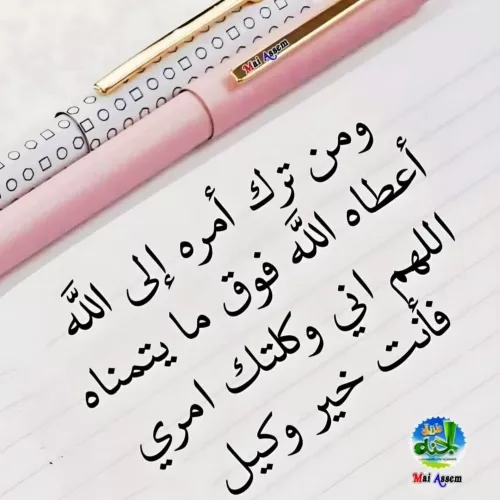 Mai Assem
ومن ترك أمره إلى اللَّه
أعطاه اللَّه فوق ما يتمناه
اللهم اني وكلتك امري
فأنت خير وكيل
طريق
الجنه
Mai Assem